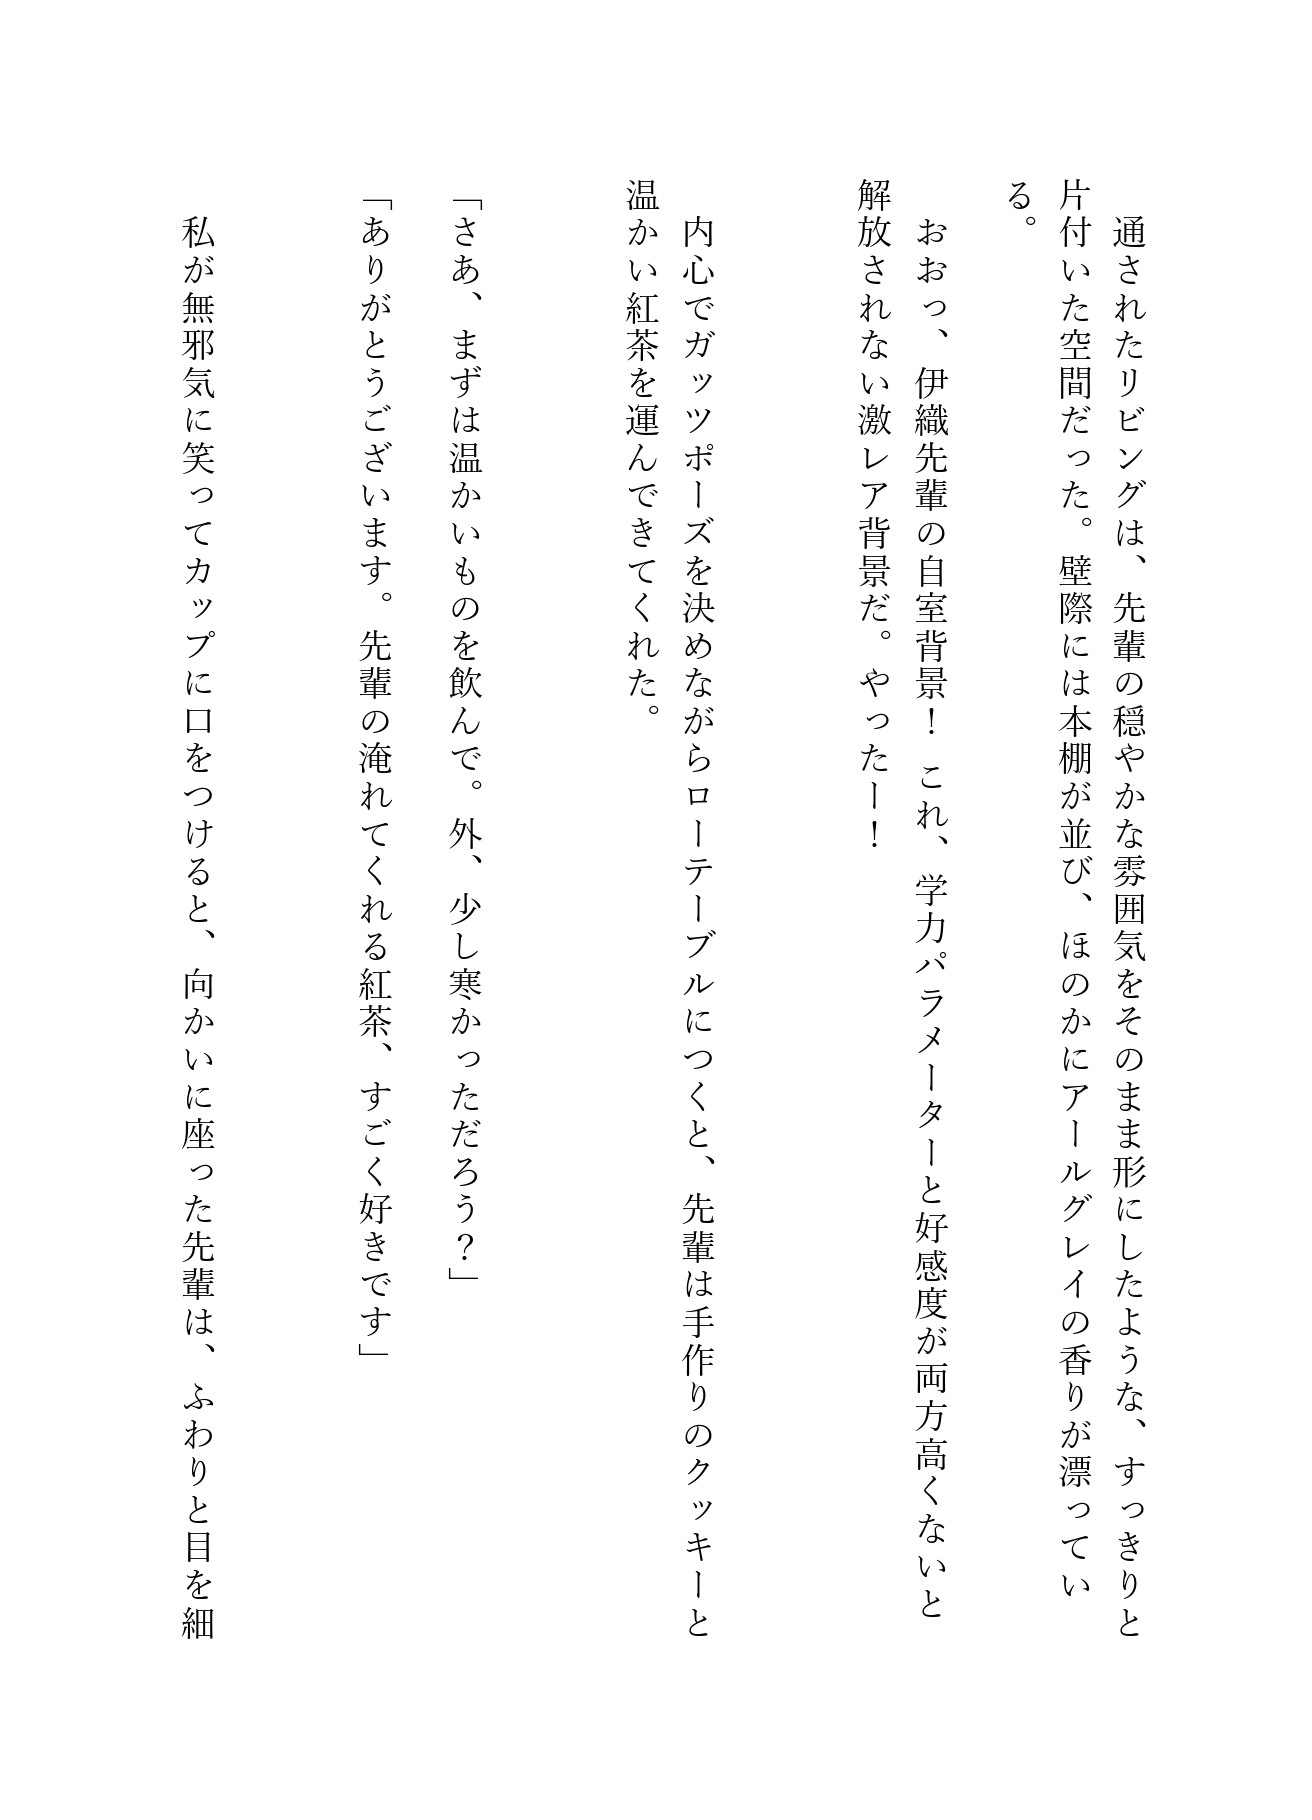 通されたリビングは、先輩の穏やかな雰囲気をそのまま形にしたような、すっきりと
片付いた空間だった。壁際には本棚が並び、ほのかにアールグレイの香りが漂ってい
る。
　おおっ、伊織先輩の自室背景！ これ、学力パラメーターと好感度が両方高くないと
解放されない激レア背景だ。やったー！
　内心でガッツポーズを決めながらローテーブルにつくと、先輩は手作りのクッキーと
温かい紅茶を運んできてくれた。
「さあ、まずは温かいものを飲んで。外、少し寒かっただろう？」
「ありがとうございます。先輩の淹れてくれる紅茶、すごく好きです」
　私が無邪気に笑ってカップに口をつけると、向かいに座った先輩は、ふわりと目を細